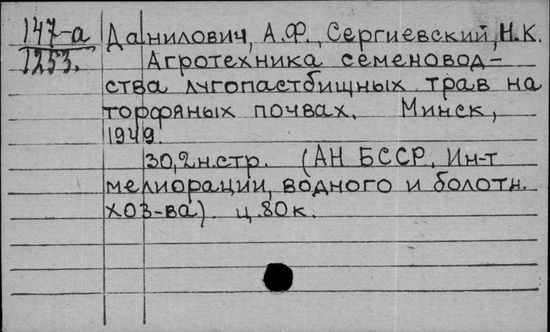 147-а Данилович, А.Ф., Сергиевский, Н.К.
1253. Агротехника семеновод-
ства лугопастбищных трав на
торфяных почвах. Минск,
1949.
30,2н.стр. (АН БССР, Ин-т
мелиорации, водного и болотн.
хоз-ва). ц. 80 к.